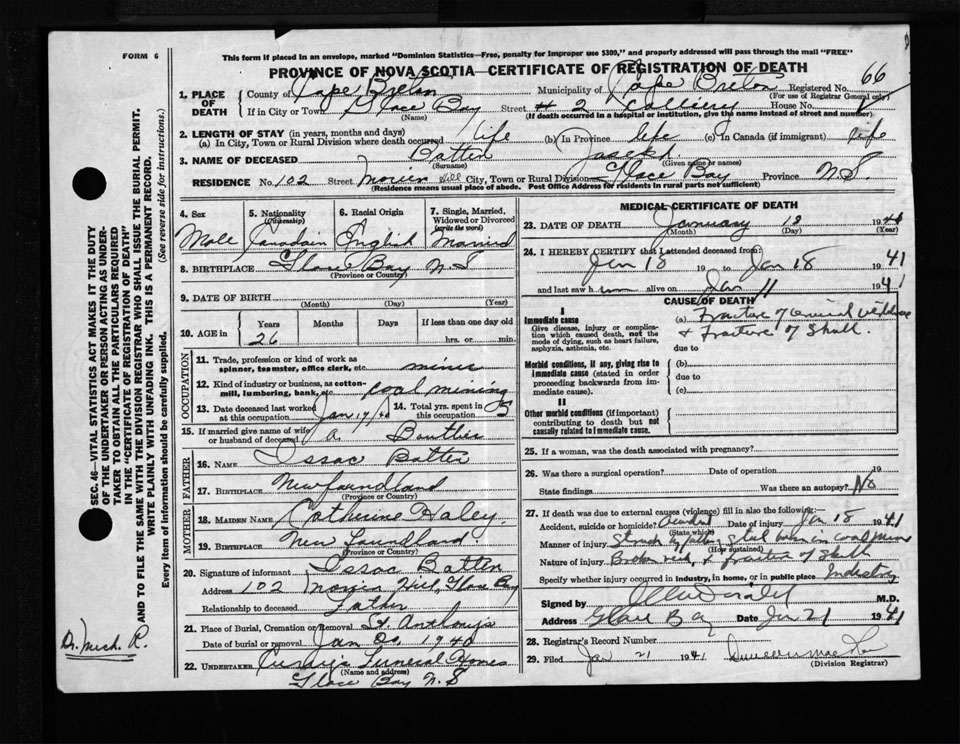 FORM 6
This form if placed in an envelope, marked "Dominion Statistics—Free, penalty for improper use $300," and properly addressed will pass through the mail "FREE"
PROVINCE OF NOVA SCOTIA—CERTIFICATE OF REGISTRATION OF DEATH
66
1. PLACE OF DEATH County of Cape Breton Municipality of Cape Breton Registered No.
(For use of Registrar General only)
If in City or Town Glace Bay Street # 2 Colliery House No.
(Name) (If death occurred in a hospital or institution, give the name instead of street and number)
2. LENGTH OF STAY (in years, months and days)
(a) In City, Town or Rural Division where death occurred life (b) In Province life (c) In Canada (if immigrant) life
3. NAME OF DECEASED Batten Joseph
(Surname) (Given name or names)
RESIDENCE No. 102 Street Hill City, Town or Rural Division Glace Bay Province N.S.
(Residence means usual place of abode. Post Office Address for residents in rural parts not sufficient)
4. Sex 5. Nationality (Citizenship) 6. Racial Origin 7. Single, Married, Widowed or Divorced (write the word)
Male Canadain English Married
8. BIRTHPLACE Glace Bay N S
(Province or Country)
9. DATE OF BIRTH
(Month) (Day) (Year)
10. AGE in Years Months Days If less than one day old
26 hrs. or min.
OCCUPATION
11. Trade, profession or kind of work as spinner, teamster, office clerk, etc. miner
12. Kind of industry or business, as cotton-mill, lumbering, bank, etc. coal mining
13. Date deceased last worked at this occupation Jan 17/40 14. Total yrs. spent in this occupation 5
15. If married give name of wife or husband of deceased a.
FATHER
16. NAME Issac Batten
17. BIRTHPLACE Newfoundland
(Province or Country)
MOTHER
18. MAIDEN NAME Catherine Haley
19. BIRTHPLACE New Foundland
(Province or Country)
20. Signature of informant Issac Batten
Address 102 Hill, Glace Bay
Relationship to deceased Father
21. Place of Burial, Cremation or Removal St. Anthony's
Date of burial or removal Jan 20, 1940
22. UNDERTAKER Funeral Homes
(Name and address)
Glace Bay N. S
MEDICAL CERTIFICATE OF DEATH
23. DATE OF DEATH January 18 194
(Month) (Day) (Year)
24. I HEREBY CERTIFY that I attended deceased from:
Jan 18 19 to Jan 18 1941
and last saw h alive on Jan 11 1941
CAUSE OF DEATH
I
Immediate cause (a) Fracture of
Give disease, injury or complication which caused death, not the mode of dying, such as heart failure, asphyxia, asthenia, etc.
& Fracture of Skull
due to
Morbid conditions, if any, giving rise to immediate cause (stated in order proceeding backwards from immediate cause).
(b)
due to
(c)
II
Other morbid conditions (if important) contributing to death but not causally related to immediate cause.
25. If a woman, was the death associated with pregnancy?
26. Was there a surgical operation? Date of operation 19
State findings Was there an autopsy? No
27. If death was due to external causes (violence) fill in also the following:—
Accident, suicide or homicide? Accident Date of injury Jan 18 1941
(State which)
Manner of injury Struck by steel in coal mine
(How sustained)
Nature of injury Broken neck, & fracture of Skull
Specify whether injury occurred in industry, in home, or in public place Industry
Signed by M.D.
Address Glace Bay Date Jan 21 1941
28. Registrar's Record Number
29. Filed Jan 21 1941
(Division Registrar)
SEC. 46—VITAL STATISTICS ACT MAKES IT THE DUTY
OF THE UNDERTAKER OR PERSON ACTING AS UNDER-
TAKER TO OBTAIN ALL THE PARTICULARS REQUIRED
IN THE "CERTIFICATE OF REGISTRATION OF DEATH"
AND TO FILE THE SAME WITH THE DIVISION REGISTRAR WHO SHALL ISSUE THE BURIAL PERMIT.
WRITE PLAINLY WITH UNFADING INK. THIS IS A PERMANENT RECORD.
Every item of information should be carefully supplied. (See reverse side for instructions.)